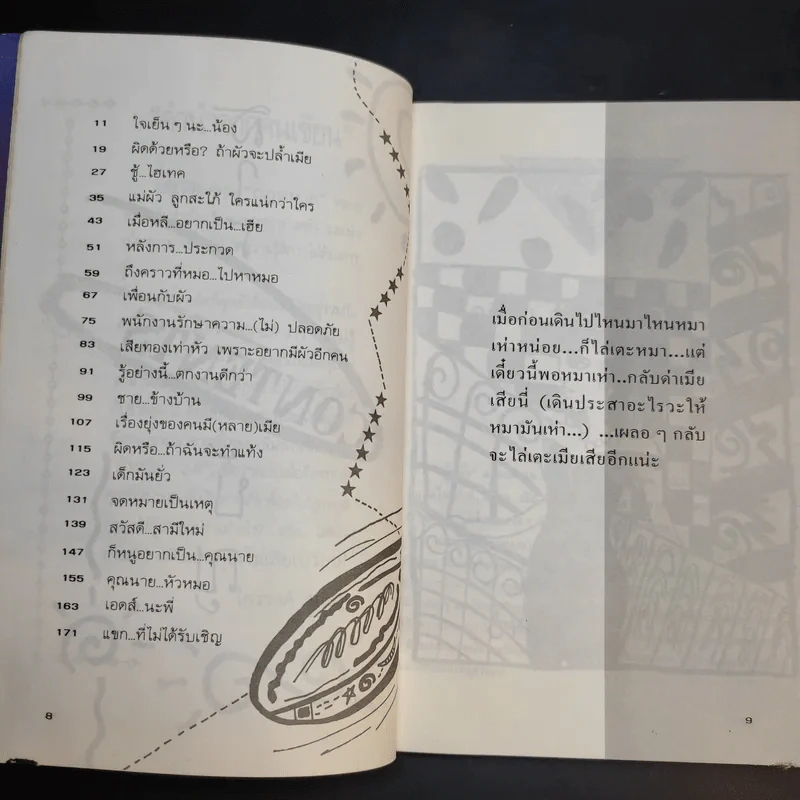 11 ใจเย็น ๆ นะ...น้อง
19 ผิดด้วยหรือ? ถ้าผัวจะปล้ำเมีย
27 ชู้...ไฮเทค
35 แม่ผัว ลูกสะใภ้ ใครแน่กว่าใคร
43 เมื่อหลี...อยากเป็น...เฮีย
51 หลังการ...ประกวด
59 ถึงคราวที่หมอ...ไปหาหมอ
67 เพื่อนกับผัว
75 พนักงานรักษาความ...(ไม่) ปลอดภัย
83 เสียทองเท่าหัว เพราะอยากมีผัวอีกคน
91 รู้อย่างนี้...ตกงานดีกว่า
99 ชาย...ข้างบ้าน
107 เรื่องยุ่งของคนมี(หลาย)เมีย
115 ผิดหรือ...ถ้าฉันจะทำแท้ง
123 เด็กมันยั่ว
131 จดหมายเป็นเหตุ
139 สวัสดี...สามีใหม่
147 ก็หนูอยากเป็น...คุณนาย
155 คุณนาย...หัวหมอ
163 เอดส์...นะพี่
171 แขก...ที่ไม่ได้รับเชิญ
8
เมื่อก่อนเดินไปไหนมาไหนหมา
เห่าหน่อย...ก็ไล่เตะหมา...แต่
เดี๋ยวนี้พอหมาเห่า..กลับด่าเมีย
เสียนี่ (เดินประสาอะไรวะให้
หมามันเห่า...) ...เผลอ ๆ กลับ
จะไล่เตะเมียเสียอีกแน่ะ
9